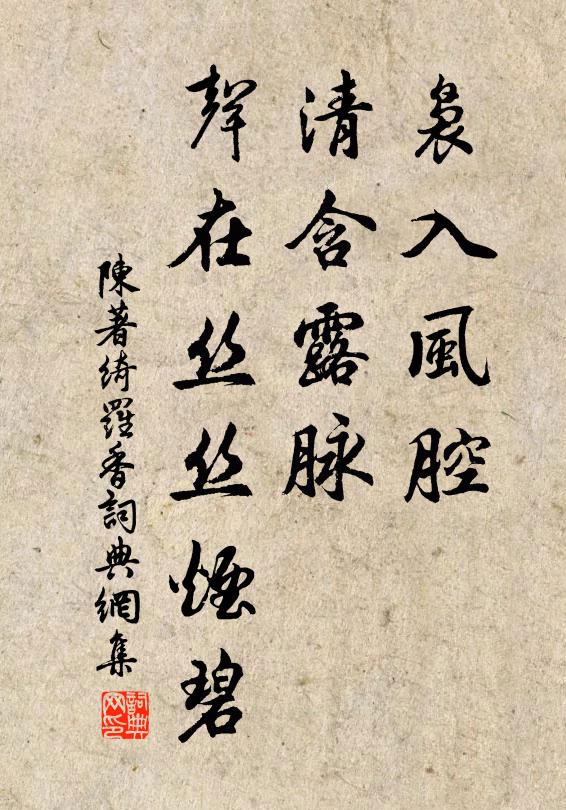 裊入風腔
清含露脉
聲在丝丝煙碧
陳著綺羅香詞典網集
詞典网印